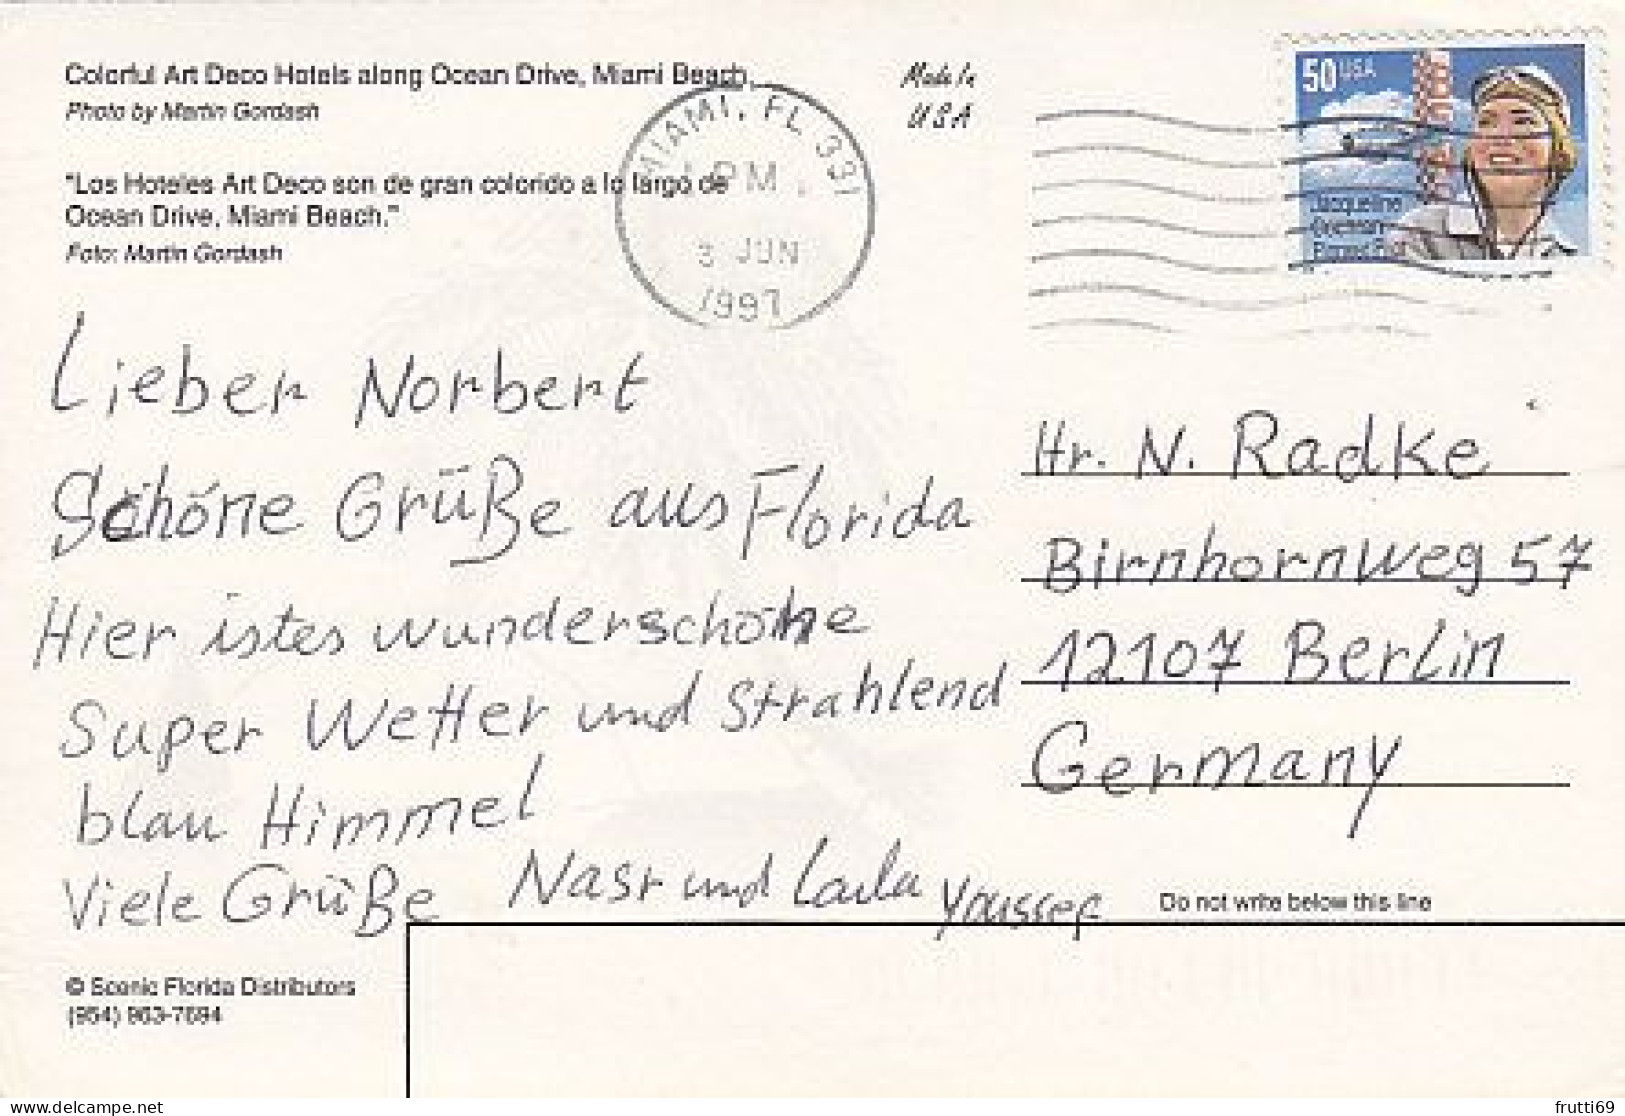 Colorful Art Deco Hotels along Ocean Drive, Miami Beach.
Photo by Martin Gordash
"Los Hoteles Art Deco son de gran colorido a lo largo de
Ocean Drive, Miami Beach."
Foto: Martin Gordash
Made In
USA
MIAMI, FL 331
PM
3 JUN
1997
50 USA
Jacqueline
Cochran
Pioneer Pilot
Lieber Norbert
Schöne Grüße aus Florida
Hier istes wunderschöhne
Super Wetter und Strahlend
blau Himmel
Viele Grüße Nasr und Laila Youssef
Hr. N. Radke
Birnhornweg 57
12107 Berlin
Germany
Do not write below this line
© Scenic Florida Distributors
(954) 963-7694
frutti69